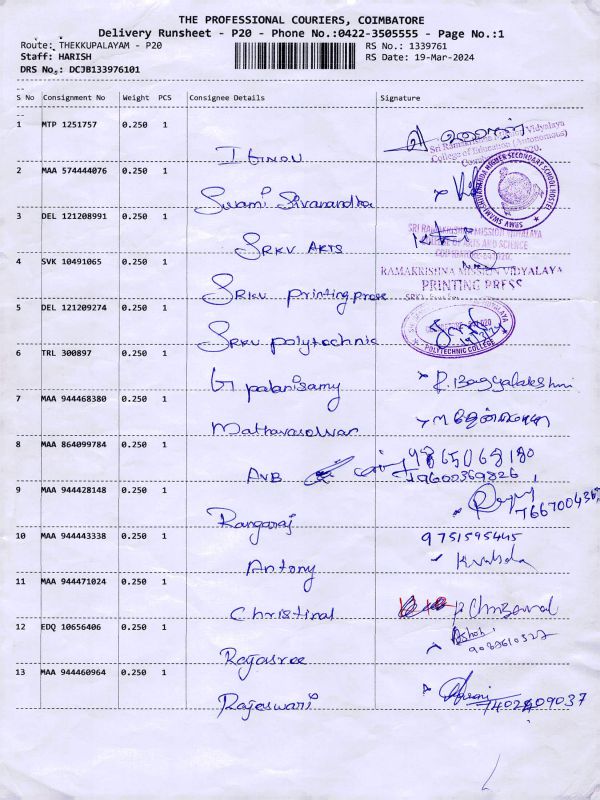 THE PROFESSIONAL COURIERS, COIMBATORE
Delivery Runsheet - P20 - Phone No.:0422-3505555 - Page No.:1
Route: THEKKUPALAYAM - P20 RS No.: 1339761
Staff: HARISH RS Date: 19-Mar-2024
DRS No.: DCJB133976101
S No Consignment No Weight PCS Consignee Details Signature
1 MTP 1251757 0.250 1
Sri Ramakrishna Mission Vidyalaya
College of Education (Autonomous)
2 MAA 574444076 0.250 1
Swami Sivanandha
SWAMI SHIVANANDA HIGHER SECONDARY SCHOOL HOSTEL
3 DEL 121208991 0.250 1
SRKV ARTS
SRI RAMAKRISHNA MISSION VIDYALAYA
COLLEGE OF ARTS AND SCIENCE
4 SVK 10491065 0.250 1
SRKV Printing press
RAMAKRISHNA MISSION VIDYALAYA
PRINTING PRESS
5 DEL 121209274 0.250 1
SRKV polytechnic
POLYTECHNIC COLLEGE
6 TRL 300897 0.250 1
G palanisamy
R. Bagyalakshmi
7 MAA 944468380 0.250 1
8 MAA 864099784 0.250 1
AVB
9865068180
9600369826
9 MAA 944428148 0.250 1
Rangaraj
10 MAA 944443338 0.250 1
Antony
9751595445
11 MAA 944471024 0.250 1
Christinal
12 EDQ 10656406 0.250 1
Rajasree
Ashok
13 MAA 944460964 0.250 1
Rajeswari